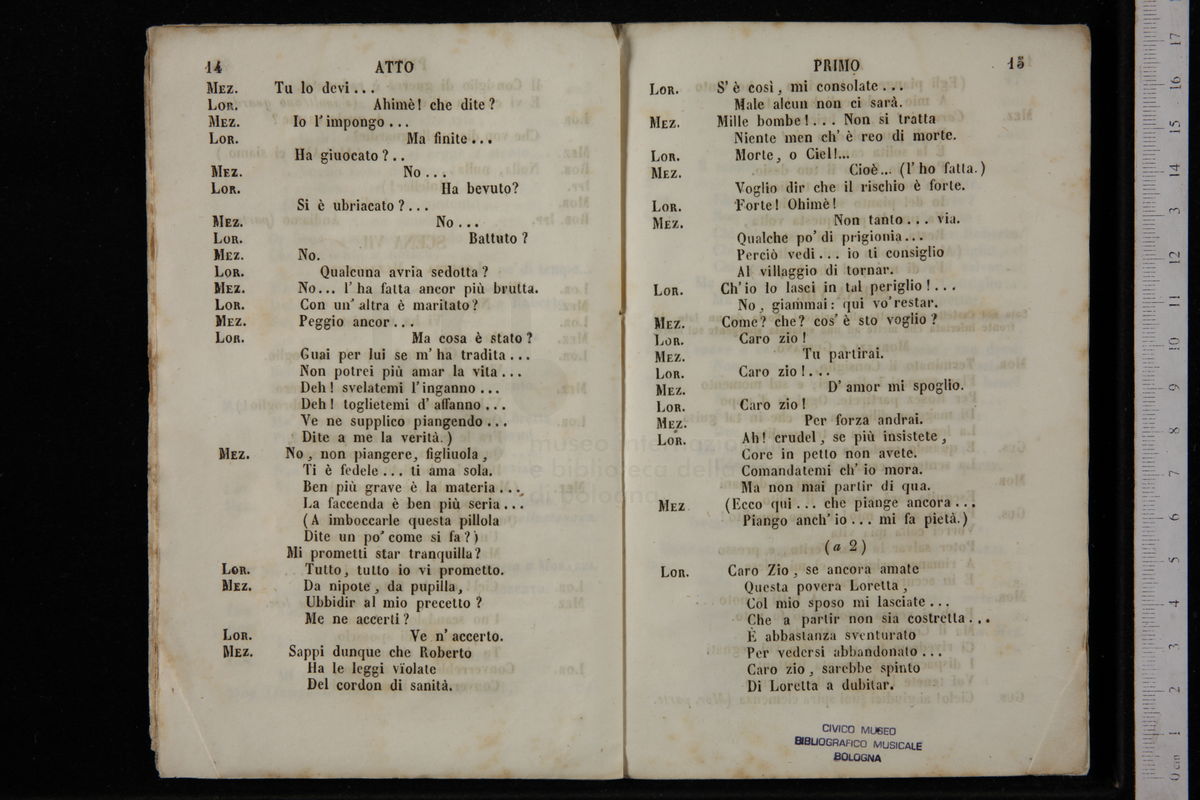 14 ATTO
Mez. Tu lo devi...
Lor. Ahimè! che dite?
Mez. Io l'impongo...
Lor. Ma finite...
Ha giuocato?..
Mez. No...
Lor. Ha bevuto?
Si è ubriacato?...
Mez. No...
Lor. Battuto?
Mez. No.
Lor. Qualcuna avria sedotta?
Mez. No... l'ha fatta ancor più brutta.
Lor. Con un'altra è maritato?
Mez. Peggio ancor...
Lor. Ma cosa è stato?
Guai per lui se m'ha tradita...
Non potrei più amar la vita...
Deh! svelatemi l'inganno...
Deh! toglietemi d'affanno...
Ve ne supplico piangendo...
Dite a me la verità.)
Mez. No, non piangere, figliuola,
Ti è fedele... ti ama sola.
Ben più grave è la materia...
La faccenda è ben più seria...
(A imboccarle questa pillola
Dite un po' come si fa?)
Mi prometti star tranquilla?
Lor. Tutto, tutto io vi prometto.
Mez. Da nipote, da pupilla,
Ubbidir al mio precetto?
Me ne accerti?
Lor. Ve n'accerto.
Mez. Sappi dunque che Roberto
Ha le leggi vïolate
Del cordon di sanità.
PRIMO 15
Lor. S'è così, mi consolate...
Male alcun non ci sarà.
Mez. Mille bombe!... Non si tratta
Niente men ch'è reo di morte.
Lor. Morte, o Ciel!...
Mez. Cioè... (l'ho fatta.)
Voglio dir che il rischio è forte.
Lor. Forte! Ohimè!
Mez. Non tanto... via.
Qualche po' di prigionia...
Perciò vedi... io ti consiglio
Al villaggio di tornar.
Lor. Ch'io lo lasci in tal periglio!...
No, giammai: qui vo'restar.
Mez. Come? che? cos'è sto voglio?
Lor. Caro zio!
Mez. Tu partirai.
Lor. Caro zio!...
Mez. D'amor mi spoglio.
Lor. Caro zio!
Mez. Per forza andrai.
Lor. Ah! crudel, se più insistete,
Core in petto non avete.
Comandatemi ch'io mora.
Ma non mai partir di qua.
Mez (Ecco qui... che piange ancora...
Piango anch'io... mi fa pietà.)
(a 2)
Lor. Caro Zio, se ancora amate
Questa povera Loretta,
Col mio sposo mi lasciate...
Che a partir non sia costretta...
È abbastanza sventurato
Per vedersi abbandonato...
Caro zio, sarebbe spinto
Di Loretta a dubitar.
CIVICO MUSEO
BIBLIOGRAFICO MUSICALE
BOLOGNA